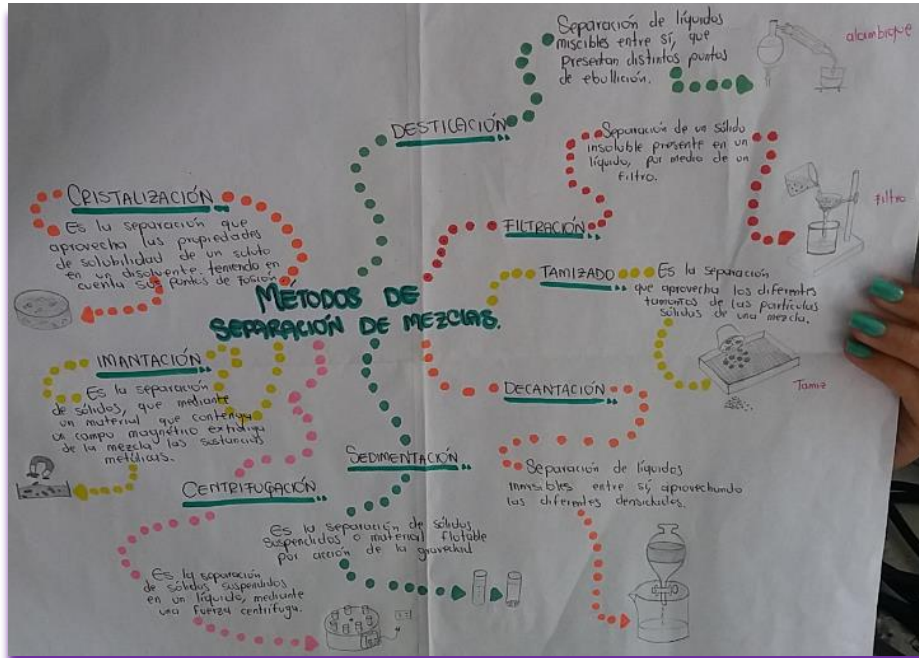 MÉTODOS DE
SEPARACIÓN DE MEZCLAS.
DESTILACIÓN
Separación de líquidos
miscibles entre sí, que
presentan distintos puntos
de ebullición.
alambique
FILTRACIÓN
Separación de un sólido
insoluble presente en un
líquido, por medio de un
filtro.
Filtro
TAMIZADO
Es la separación
que aprovecha los diferentes
tamaños de las partículas
sólidas de una mezcla.
Tamiz
DECANTACIÓN
Separación de líquidos
inmisibles entre sí aprovechando
las diferentes densidades.
SEDIMENTACIÓN
Es la separación de sólidos
suspendidos o material flotable
por acción de la gravedad
CENTRIFUGACIÓN
Es la separación
de sólidos suspendidos
en un líquido, mediante
una fuerza centrifuga.
IMANTACIÓN
Es la separación
de sólidos, que mediante
un material que contenga
un campo magnético extraiga
de la mezcla las sustancias
metálicas.
CRISTALIZACIÓN
Es la separación que
aprovecha las propiedades
de solubilidad de un soluto
en un disolvente, teniendo en
cuenta sus puntos de fusión